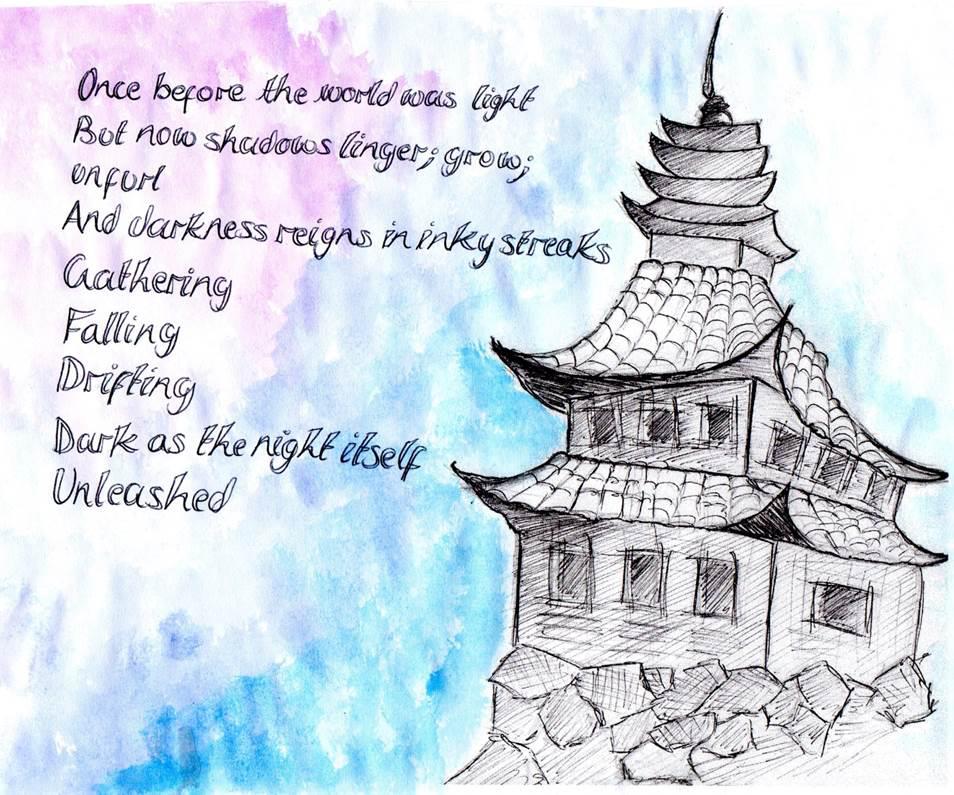 Once before the world was light
But now shadows linger; grow;
unfurl
And darkness reigns in inky streaks
Gathering
Falling
Drifting
Dark as the night itself
Unleashed